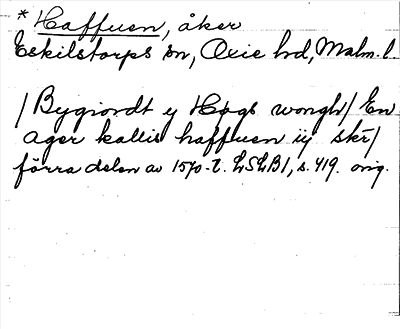 * Haffuen, åker
Eskilstorps sn, Oxie hd, Malm. l.
/Bygiordt ij Høgs wongh/ En
ager kallis haffuen iij sk̄r/
förra delen av 1570-t. LSLB1, s. 419. orig.